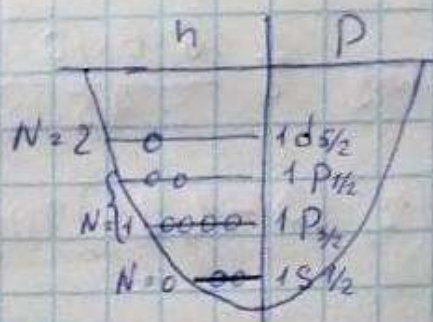 n P
N = 2 1 d 5/2
1 P 1/2
N = 1 1 P 3/2
N = 0 1 S 1/2